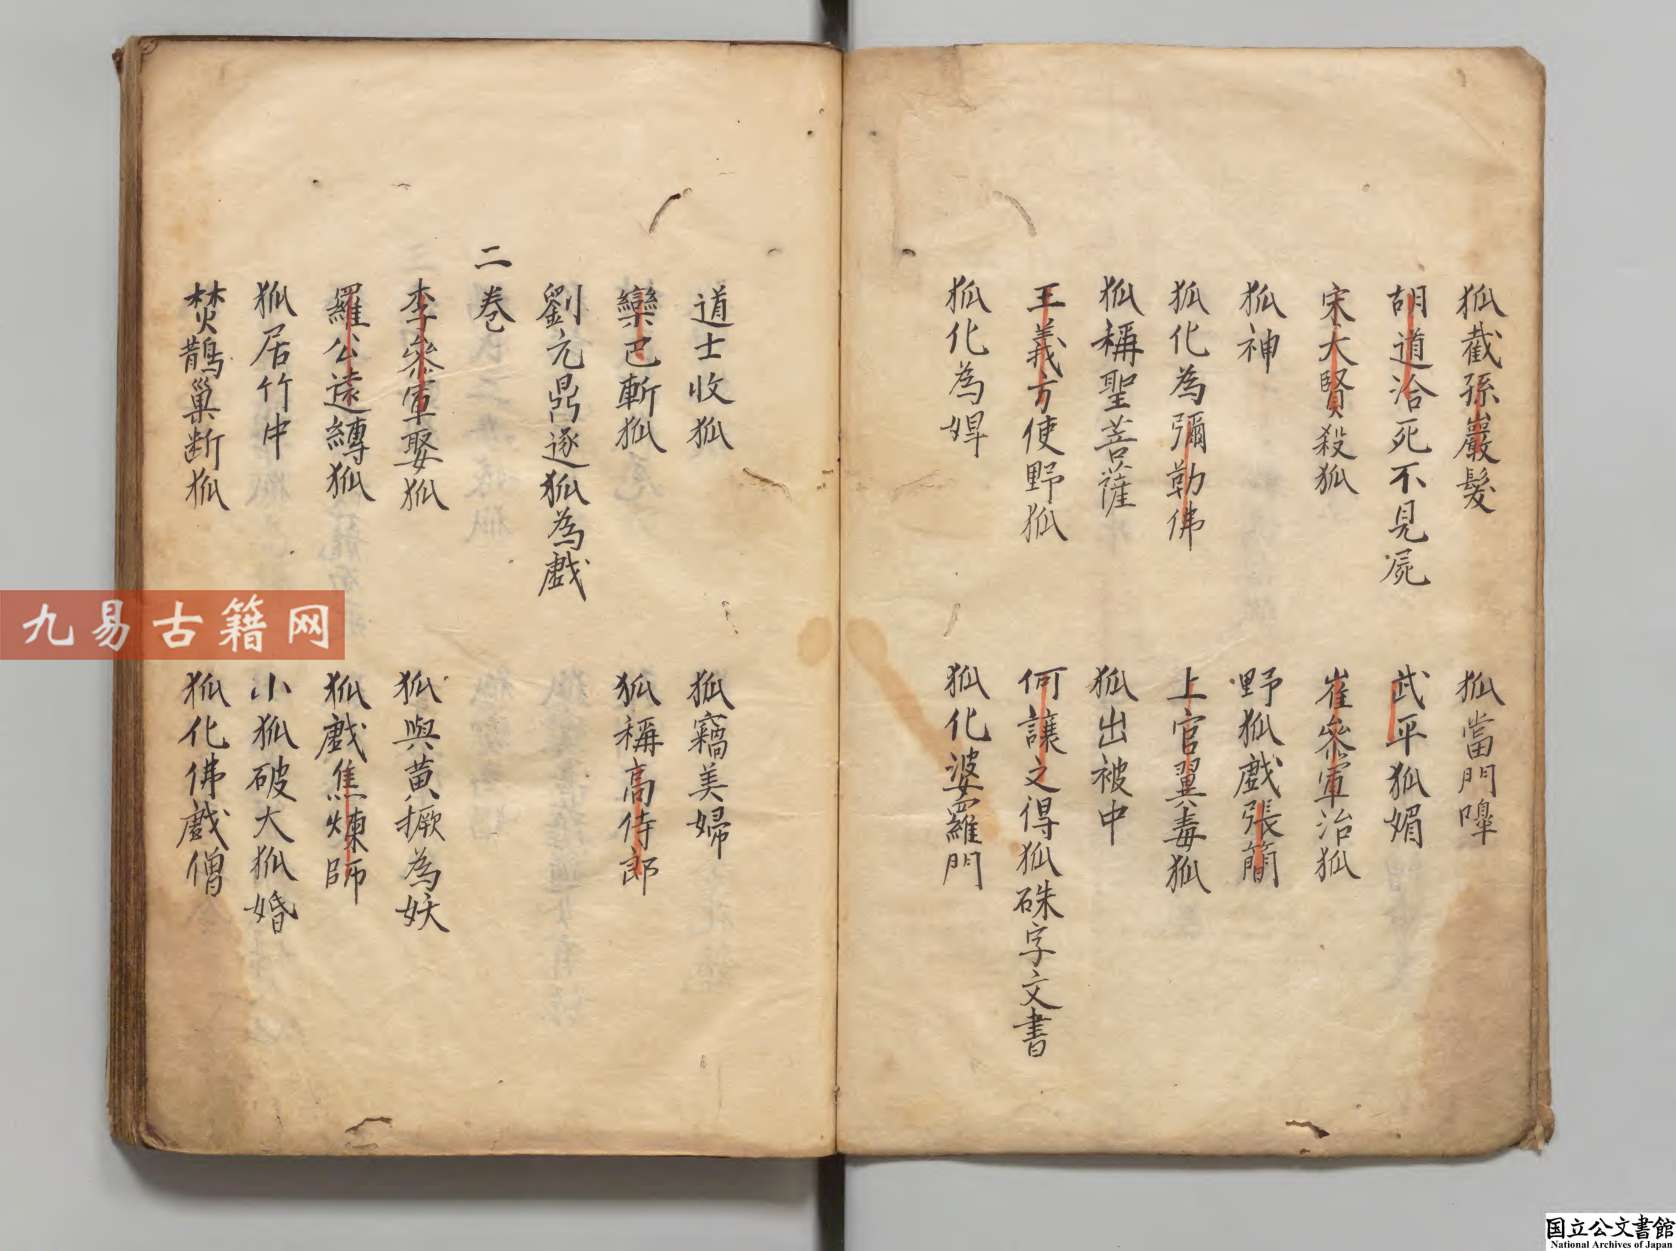 狐截孫巖髮
狐當門嘷
胡道洽死不見屍
武平狐媚
宋大賢殺狐
崔參軍治狐
狐神
野狐戲張簡
狐化為彌勒佛
上官翼毒狐
狐稱聖菩薩
狐出被中
王義方使野狐
何讓之得狐硃字文書
狐化為婢
狐化婆羅門
道士收狐
狐竊美婦
欒巴斬狐
狐稱高侍郎
劉元鼎逐狐為戲
二卷
李參軍娶狐
狐與黄撅為妖
羅公遠縛狐
狐戲焦煉師
狐居竹中
小狐破大狐婚
焚鵲巢断狐
狐化佛戲僧
九易古籍网
国立公文書館
National Archives of Japan